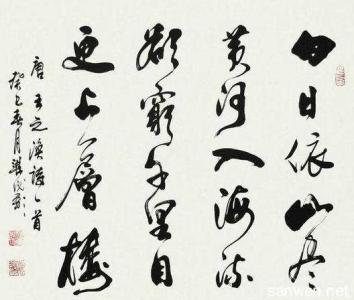 白日依山尽
黄河入海流
欲窮千里目
更上一層楼
唐王之涣诗一首
癸巳春月
sanwen.net